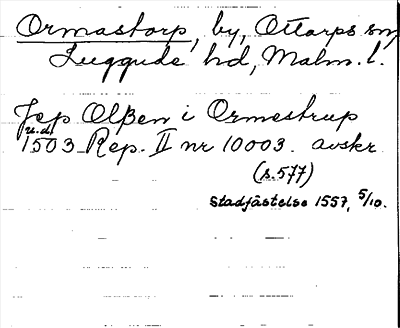 Ormastorp, by, Ottarps sn,
Luggude hd, Malm. l.
Jep Olßen i Ormestrup
u.d.
1503 Rep. II nr 10003. avskr
(s. 577)
Stadfästelse 1557, 5/10.